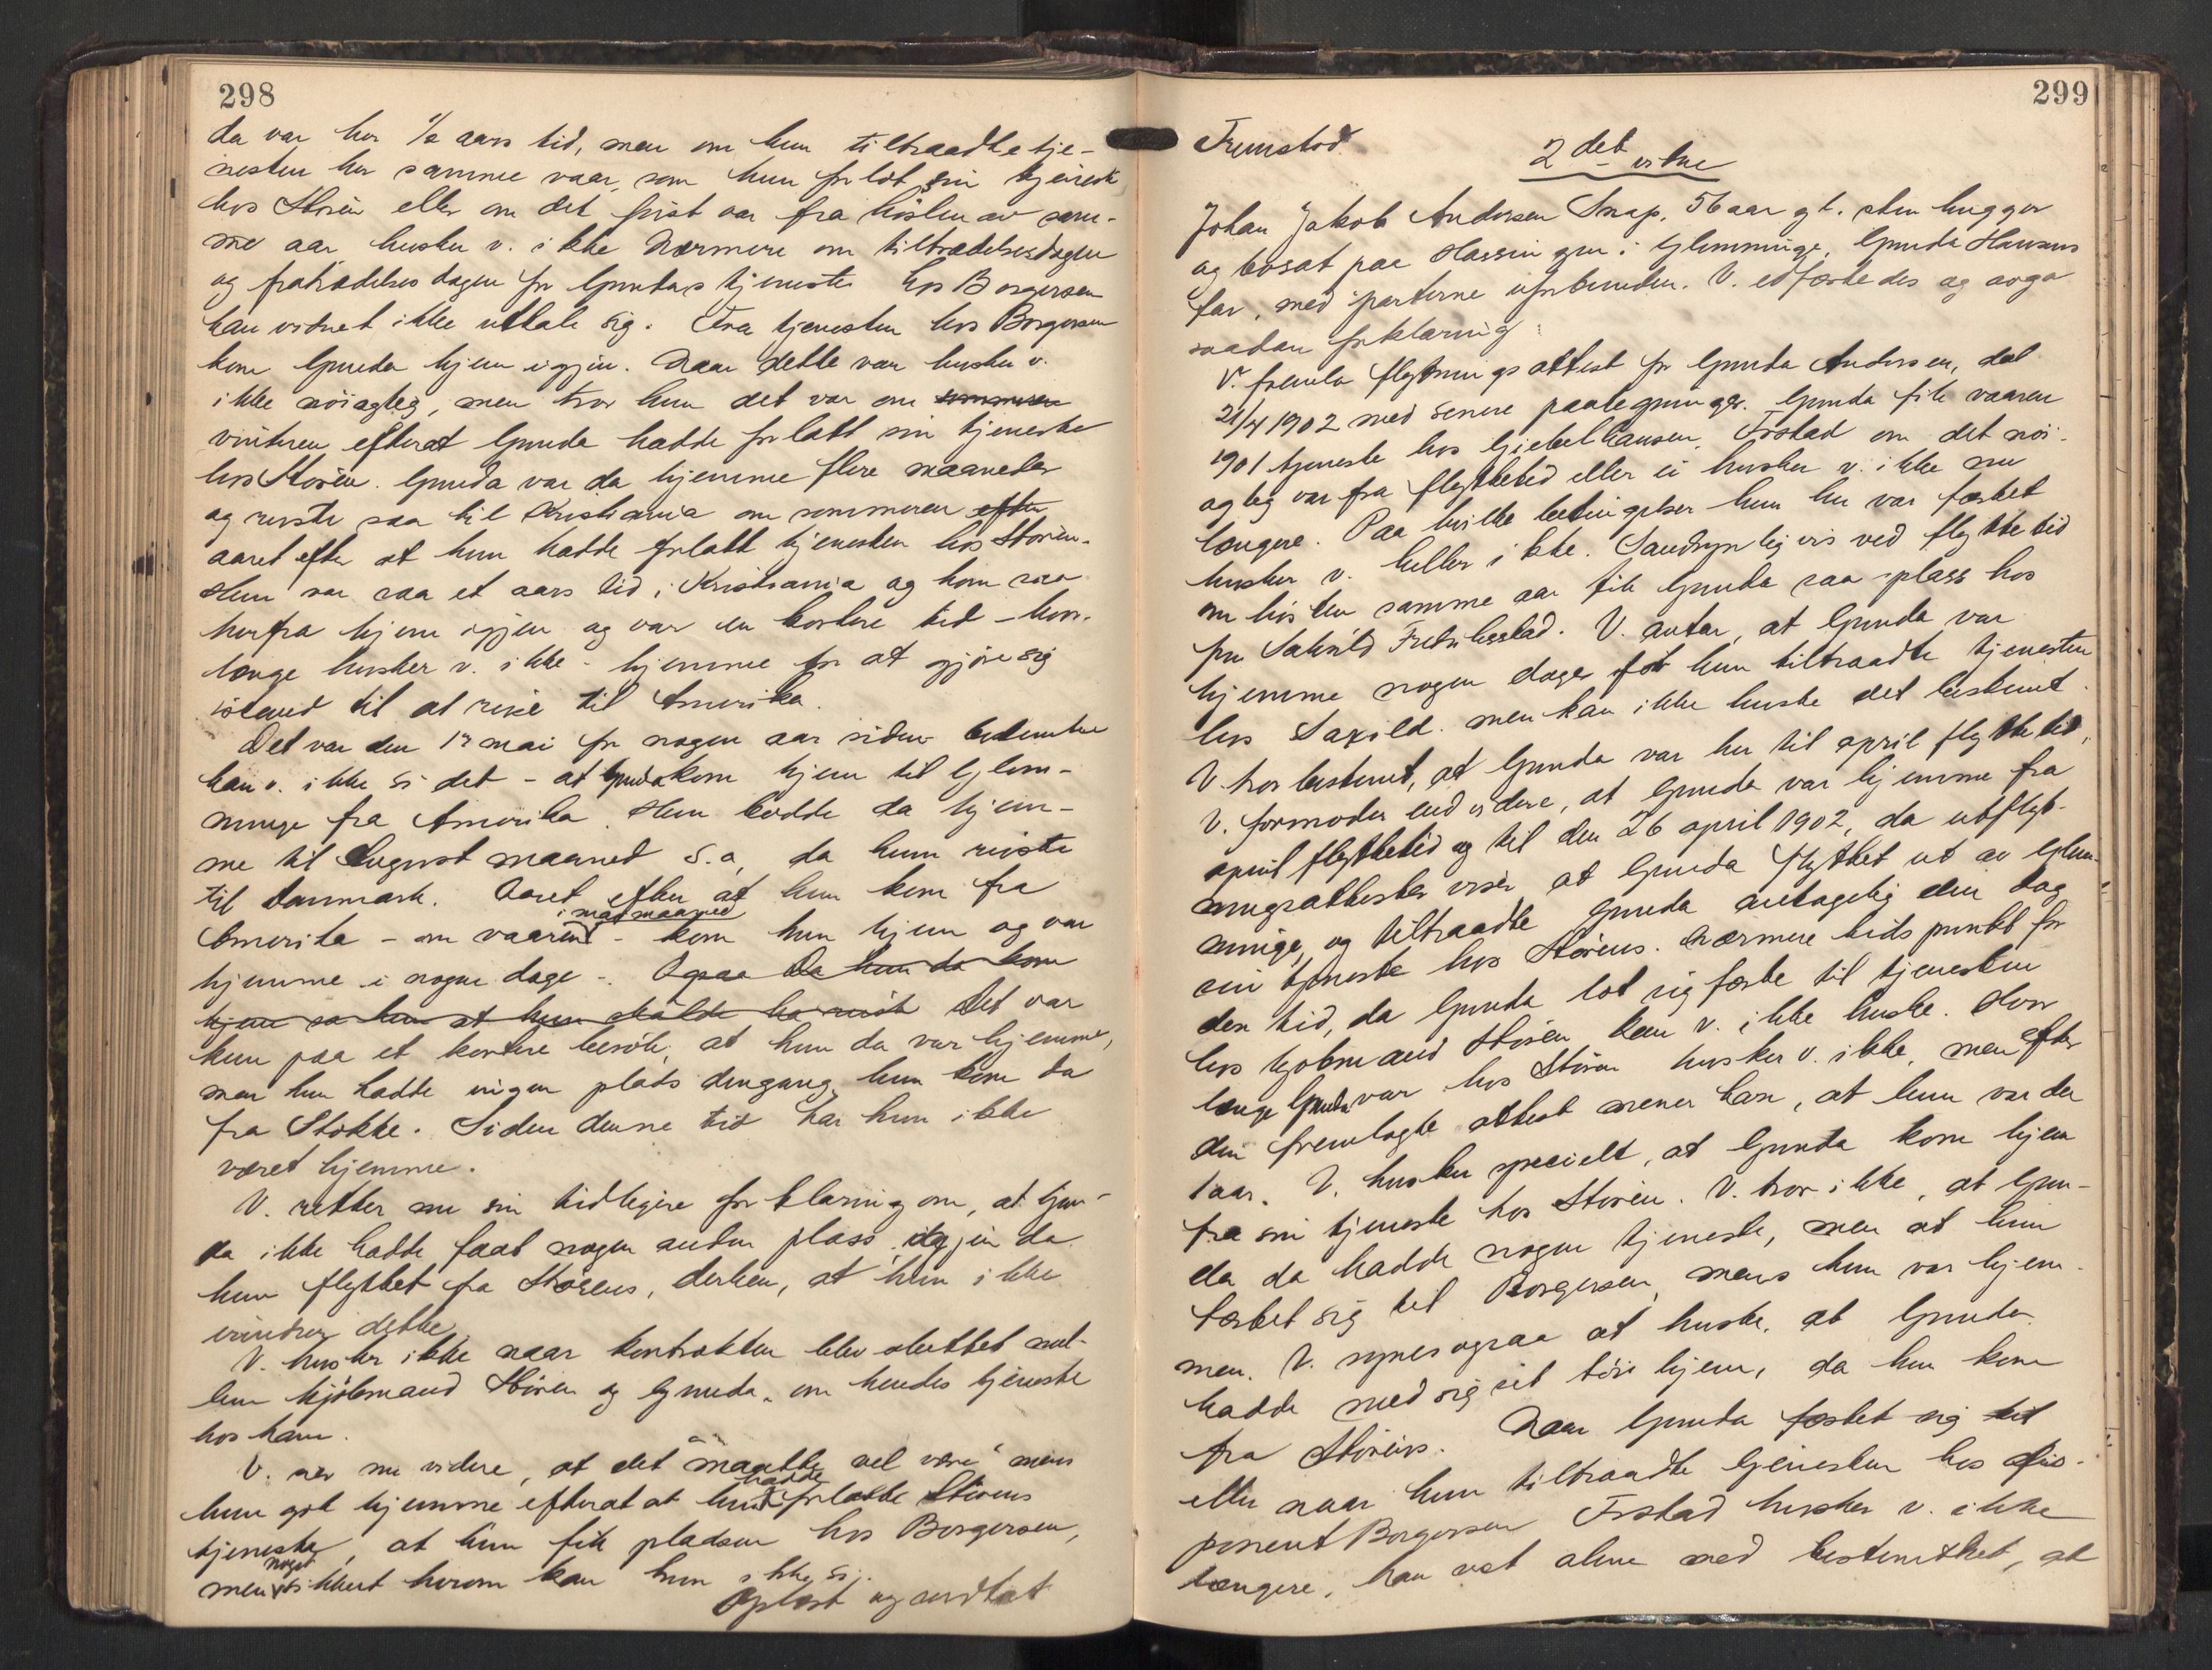 298
da var her ½ aars tid, men om hun tiltraadte tje-
nesten her samme vaar, som hun forlot sin tjeneste
hos Storén eller om det først var fra høsten av sam-
me aar husker v. ikke. Nærmere om tiltrædelsesdagen
og fratrædelsesdagen for Gundas tjeneste hos Borgersen
kan vidnet ikke uttale sig. Fra tjenesten hos Borgersen
kom Gunda hjem igjen. Naar dette var husker v.
ikke nøiagtig, men tror hun det var om sommeren
vinteren efterat Gunda hadde forlatt sin tjeneste
hos Storén. Gunda var da hjemme flere maaneder
og reiste saa til Kristiania om sommeren efter
aaret efter at hun hadde forlatt tjenesten hos Storén.
Hun var saa et aars tid i Kristiania og kom saa
herfra hjem igjen og var en kortere tid – hvor-
længe husker v. ikke – hjemme for at gjøre sig
istand til at reise til Amerika.
Det var den 17 mai for nogen aar siden – bestemtere
kan v. ikke si det – at Gunda kom hjem til Glem-
minge fra Amerika. Hun bodde da hjem-
me til August maaned s.a, da hun reiste
til Danmark. Aaret efter at hun kom fra
Amerika – om vaaren i mai maaned – kom hun hjem og var
hjemme i nogen dage –. Ogsaa Da hun da kom
hjem sa hun at hun skulde ha reist Det var
kun paa et kortere besøk, at hun da var hjemme,
men hun hadde ingen plads dengang hun kom da
fra Stokke. Siden denne tid har hun ikke
været hjemme.
V. retter nu sin tidligere forklaring om, at Gun-
da ikke hadde faat nogen anden plass igjen da
hun flyttet fra Storéns, derhen, at hun ikke
erindrer dette.
V. husker ikke naar kontrakten blev sluttet mel-
lem kjøbmand Storén og Gunda om hendes tjeneste
hos ham.
V. sier nu videre, at det "maatte vel være" mens
hun gik hjemme efterat at hun hadde forlatte Storens
tjeneste, at hun fik pladsen hos Borgersen,
men noget sikkert herom kan hun ikke si.
Oplæst og vedtat
299
Fremstod
2det vitne
Johan Jakob Andersen Snap, 56 aar gl. stenhugger
og bosat paa Hassingen i Glemminge, Gunda Hansens
far, med parterne ubeslegtet. V. edfæstedes og avga
saadan forklaring:
V. fremla flytningsattest for Gunda Andersen, dat
21/4 1902 med senere paategninger. Gunda fik vaaren
1901 tjeneste hos Gjebelhausen, Frstad om det nøi-
agtig var fra flyttetid eller ei husker v. ikke nu
længere. Paa hvilke betingelser hun her var fæstet
husker v. heller ikke. Sandsynligvis ved flyttetid
om høsten samme aar fik Gunda saa plass hos
fru Saxild Fredriksstad. V. antar, at Gunda var
hjemme nogen dager før hun tiltraadte tjenesten
hos Saxild. men kan ikke huske det bestemt.
V. tror bestemt, at Gunda var her til april flyttetid.
V. formoder endvidere, at Gunda var hjemme fra
april flyttetid og til den 26 april 1902, da utflyt-
ningsattesten viser at Gunda flyttet ut av Glem-
minge, og tiltraadte Gunda antagelig den dag
sin tjeneste hos Storéns. Nærmere tidspunkt for
den tid, da Gunda lot sig fæste til tjenesten
hos kjøbmand Storén kan v. ikke huske. Hvor
længe Gunda var hos Storén husker v. ikke, men efter
den fremlagte attest mener han, at hun var der
1 aar. V. husker specielt, at Gunda kom hjem
fra sin tjeneste hos Storén. V. tror ikke, at Gun-
da da hadde nogen tjeneste, men at hun
fæstet sig til Borgersen, mens hun var hjem-
me. V. synes ogsaa at huske, at Gunda
hadde med sig sit tøi hjem, da hun kom
fra Storéns. Naar Gunda fæstet sig til
eller naar hun tiltraadte tjenesten hos dis-
ponent Borgersen Frstad husker v. ikke
længere, han vet alene med bestemthet, at